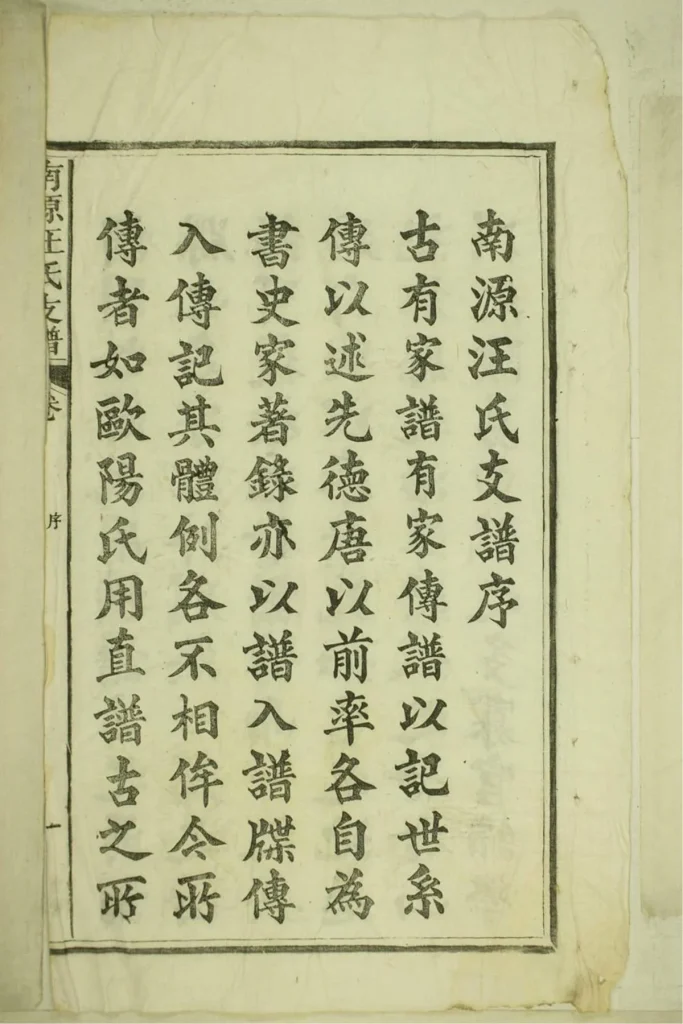 南源汪氏支譜序
古有家譜有家傳譜以記世系
傳以述先德唐以前率各自為
書史家著錄亦以譜入譜牒傳
入傳記其體例各不相侔今所
傳者如歐陽氏用直譜古之所
南源汪氏支譜
卷
序
一